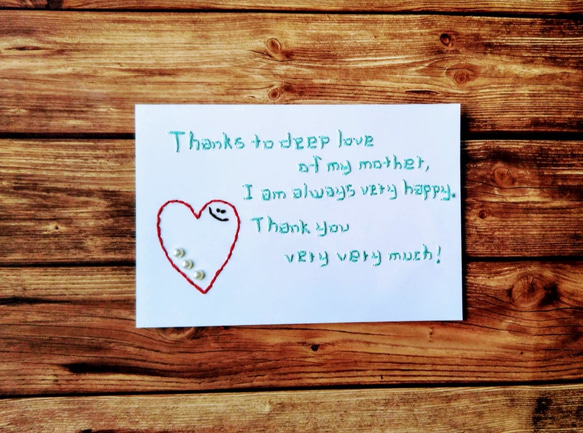 Thanks to deep love
of my mother,
I am always very happy.
Thank you
very very much!